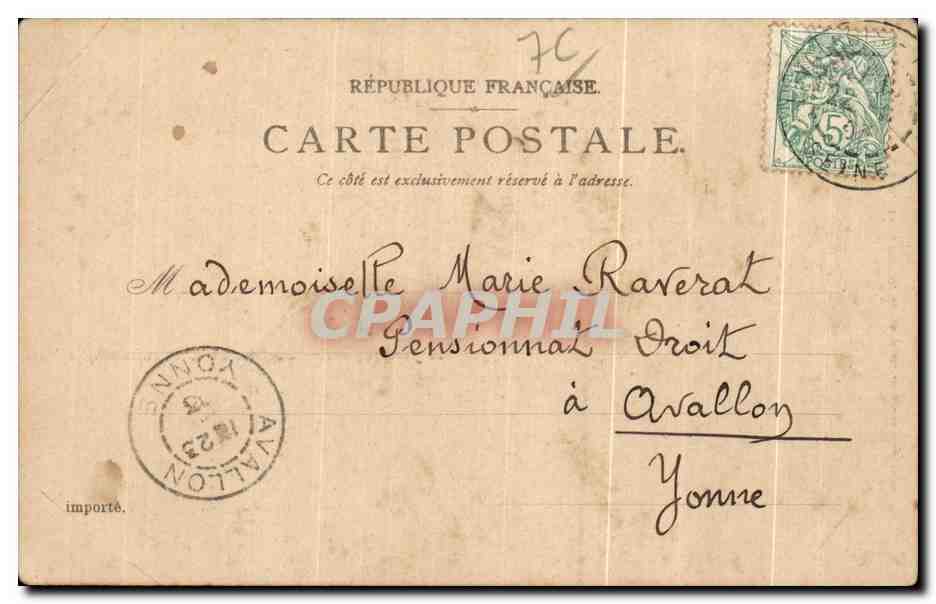 7C
RÉPUBLIQUE FRANÇAISE.
CARTE POSTALE.
Ce côté est exclusivement réservé à l'adresse.
5
SEINE
Mademoiselle Marie Raverat
CPAPHIL
Pensionnat Droit
à Avallon
Yonne
AVALLON
YONNE
23
importé.